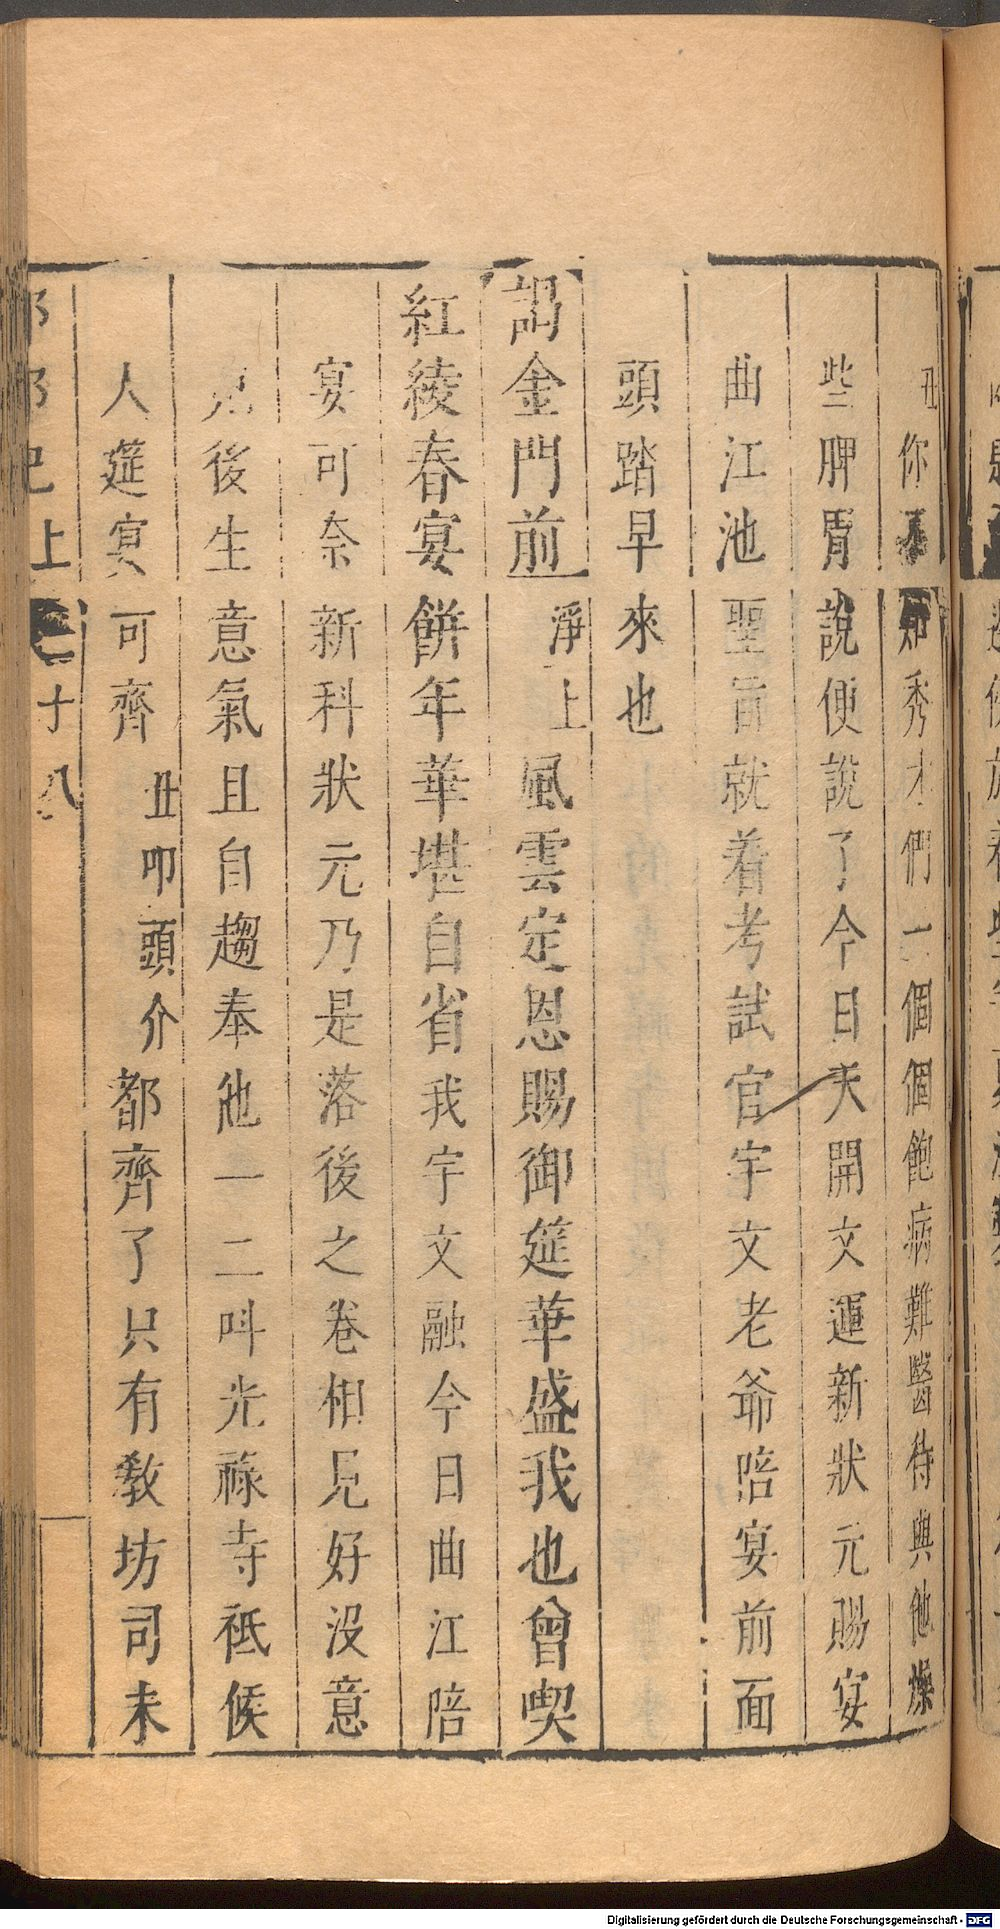 丑你不知秀才們一個個飽病難醫待與他燥
些脾胃說便說了今日天開文運新狀元賜宴
曲江池聖旨就着考試官宇文老爺陪宴前面
頭踏早來也
謁金門前淨上風雲定恩賜御筵華盛我也曾喫
紅綾春宴餅年華堪自省我宇文融今日曲江陪
宴可奈新科狀元乃是落後之卷相見好沒意
後生意氣且自趨奉他一二叫光祿寺祗候
人筵宴可齊丑叩頭介都齊了只有教坊司未
上十八
Digitalisierung gefördert durch die Deutsche Forschungsgemeinschaft - DFG